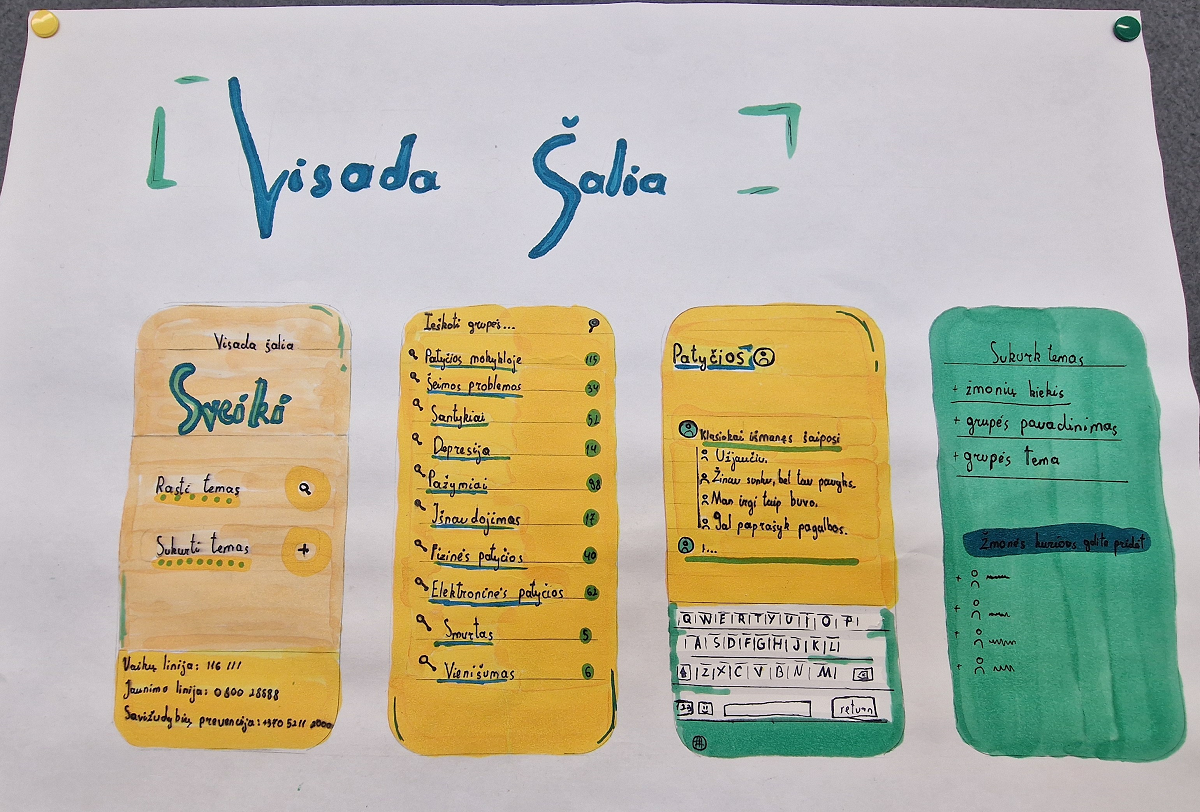 Visada Šalia
Visada šalia
Sveiki
Rasti temas
Sukurti temas
Vaikų linija: 116 111
Jaunimo linija: 0 800 28888
Savižudybių prevencija: +370 5211 2000
Ieškoti grupės...
Patyčios mokykloje 115
Šeimos problemos 34
Santykiai 52
Depresija 14
Pažymiai 98
Išnaudojimas 17
Fizinės patyčios 40
Elektroninės patyčios 62
Smurtas 5
Vienišumas 6
Patyčios
Klasiokai išmanęs šaiposi
Užjaučiu.
Žinau sunku, bet tau pavyks.
Man irgi taip buvo.
Gal paprašyk pagalbos.
I...
Q W E R T Y U I O P
A S D F G H J K L
Z X C V B N M
return
Sukurk temas
+ žmonių kiekis
+ grupės pavadinimas
+ grupės tema
Žmonės kuriuos galite pridėt
+
+
+
+